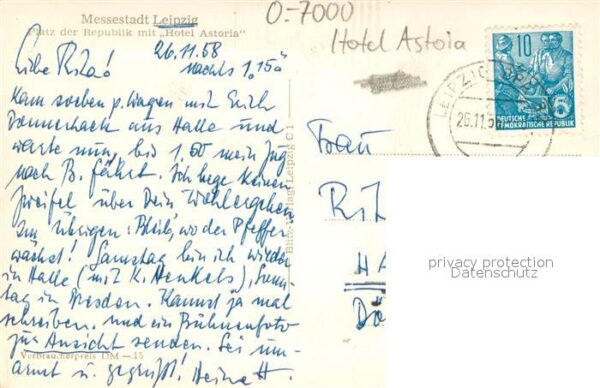 Messestadt Leipzig
Platz der Republik mit „Hotel Astoria"
O-7000
Hotel Astoria
26.11.58
nachts 1,15ʰ
Liebe Rita!
Kam soeben p. Wagen mit Erich
Donnerhack aus Halle und
warte nun, bis 1.50 mein Zug
nach B. fährt. Ich hege keinen
Zweifel über Dein Wohlergehen
im übrigen: Bleib, wo der Pfeffer
wächst! Samstag bin ich wieder
in Halle (mit K. Henkels), Sonn-
tag in Dresden. Kannst ja mal
schreiben. und ein Bühnenfoto
zur Ansicht senden. Sei um-
armt u. gegrüßt! Heinz H.
Verbraucherpreis DM —.15
Verlag Leipzig C 1
10
DEUTSCHE
DEMOKRATISCHE REPUBLIK
LEIPZIG
26.11.5
Frau
Rit
HA
privacy protection
Datenschutz